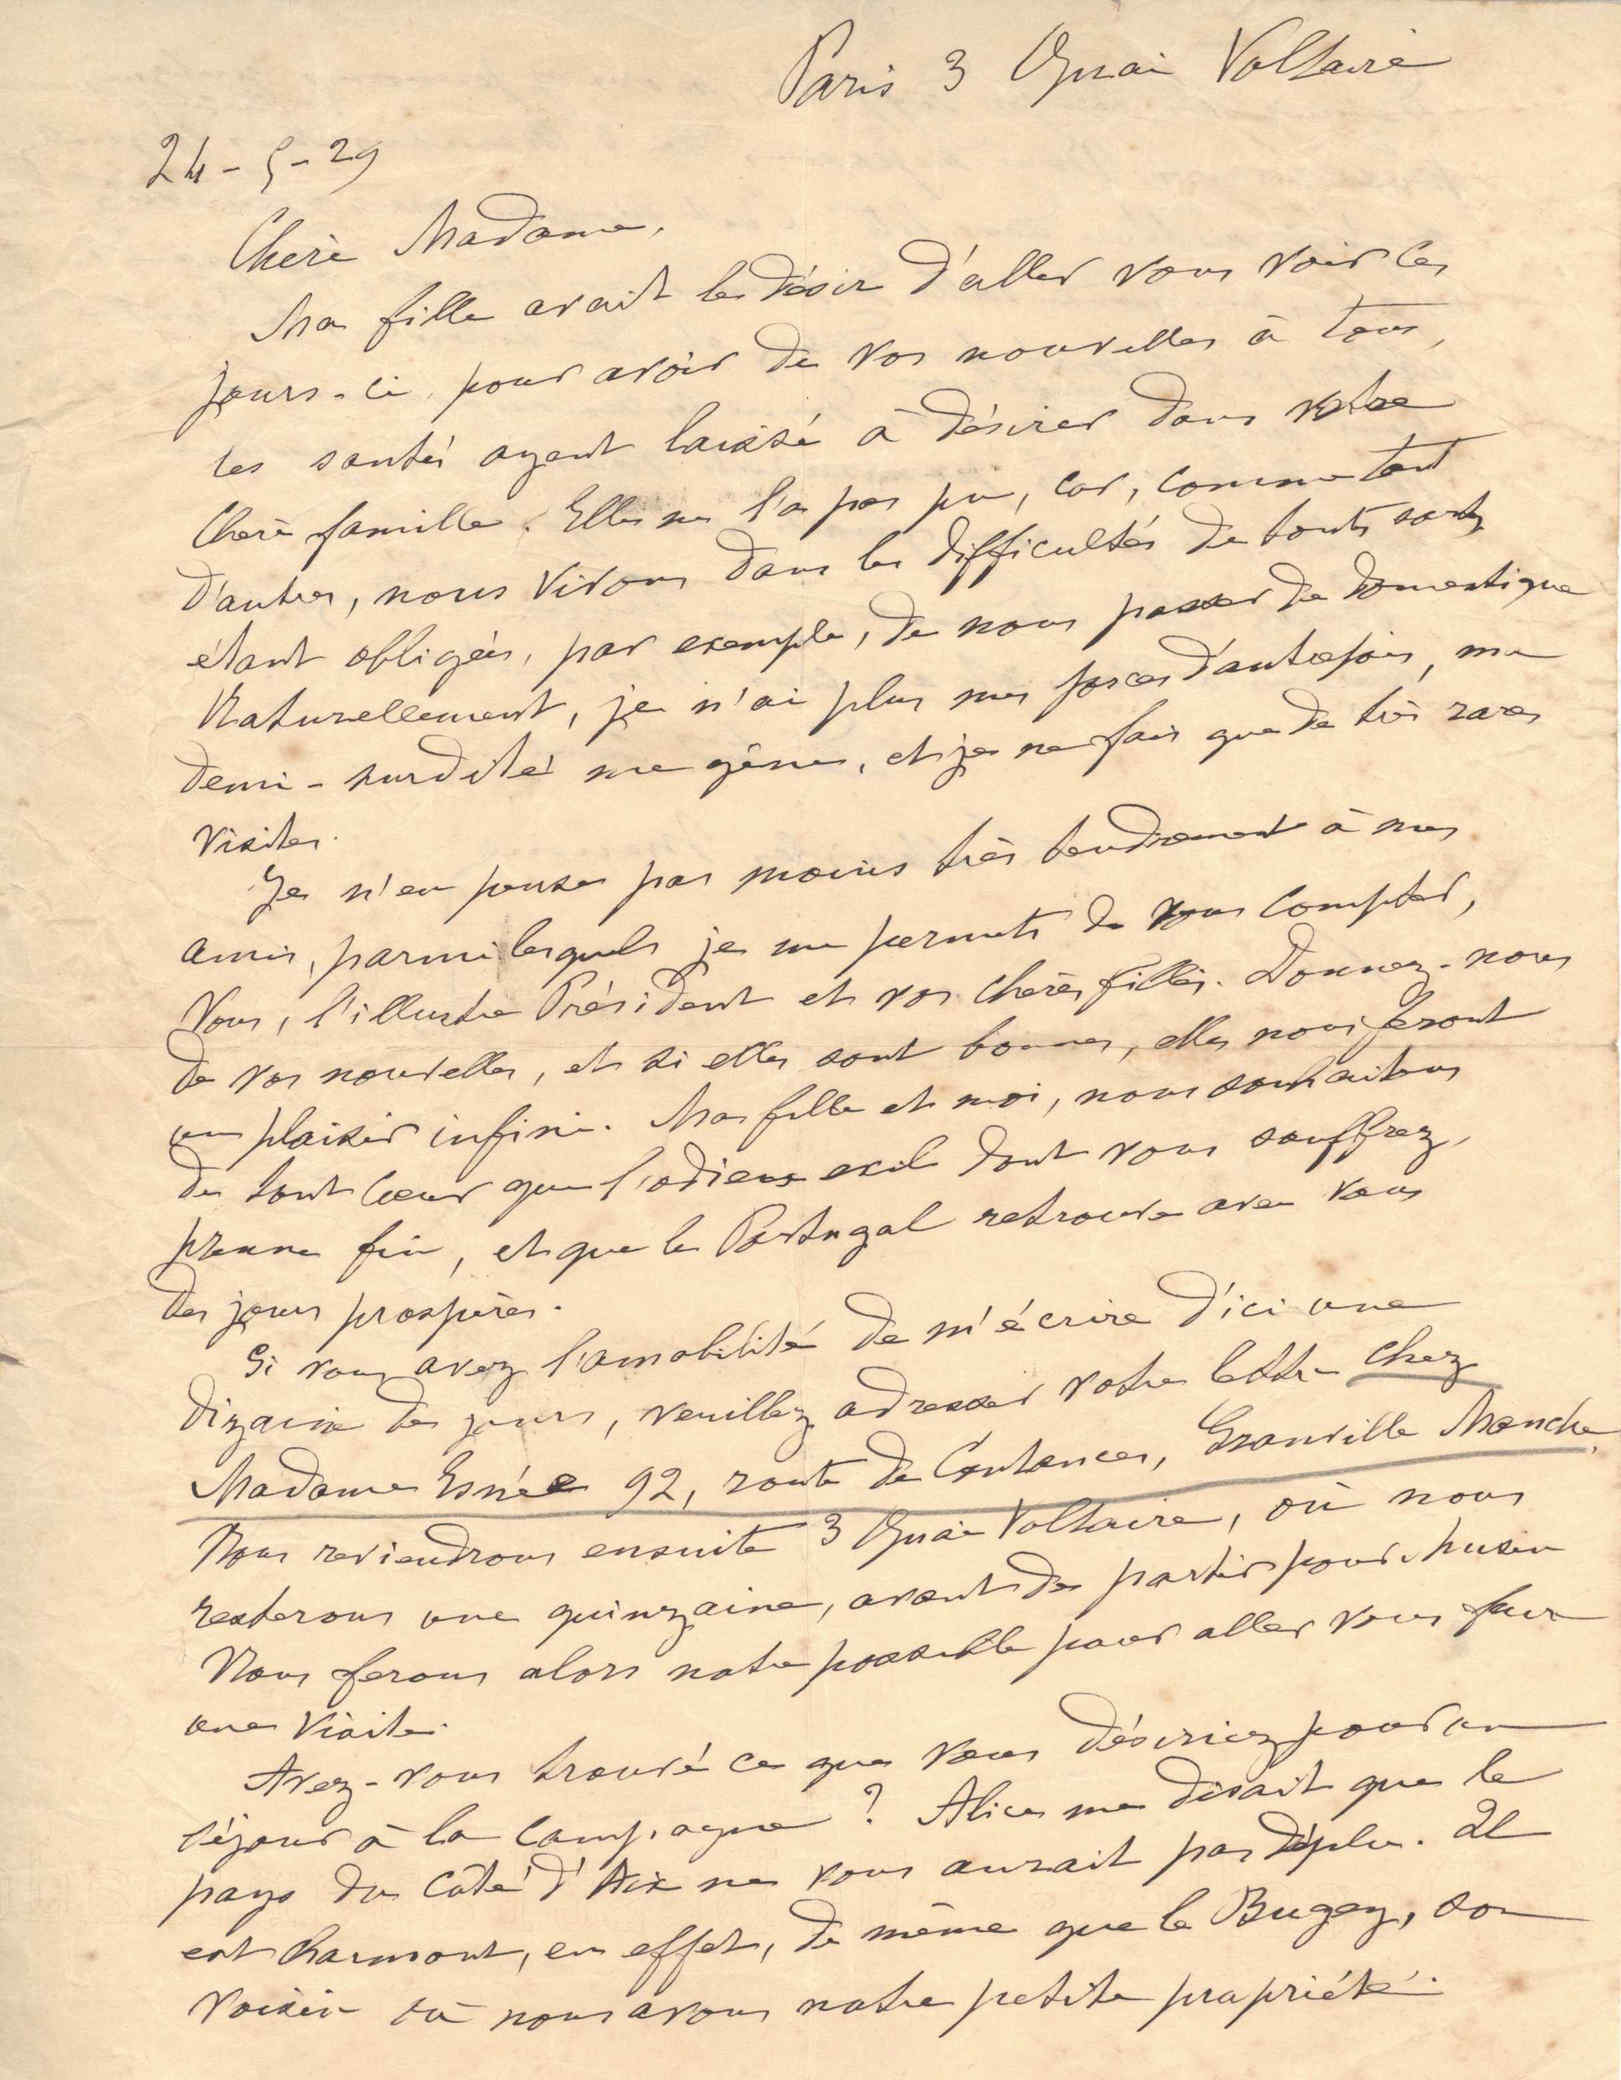 Paris 3 Quai Voltaire
24-5-29
Chère Madame,
Ma fille avait le désir d'aller vous voir ces
jours-ci, pour avoir de vos nouvelles à tous,
les santés ayant laissé à désirer dans votre
chère famille. Elle ne l'a pas pu, car, comme tant
d'autres, nous vivons dans les difficultés de toute sorte
étant obligées, par exemple, de nous passer de domestique
Naturellement, je n'ai plus mes forces d'autrefois, ma
demi-surdité me gêne, et je ne fais que de très rares
visites.
Je n'en pense pas moins très tendrement à mes
amis, parmi lesquels je me permets de vous compter,
Vous, l'illustre Président et vos chères filles. Donnez-nous
de vos nouvelles, et si elles sont bonnes, elles nous feront
un plaisir infini. Ma fille et moi, nous souhaitons
de tout cœur que l'odieux exil dont vous souffrez,
prenne fin, et que le Portugal retrouve avec vous
des jours prospères.
Si vous avez l'amabilité de m'écrire d'ici une
dizaine de jours, veuillez adresser votre lettre chez
Madame Esnée 92, route de Coutances, Granville Manche.
Nous reviendrons ensuite 3 Quai Voltaire, où nous
resterons une quinzaine, avant de partir pour
Nous ferons alors notre possible pour aller vous faire
une visite.
Avez-vous trouvé ce que vous désiriez pour un
séjour à la campagne ? Alice me disait que le
pays du côté d'Aix ne vous aurait pas déplu. Il
est charmant, en effet, de même que le Bugey, son
voisin où nous avons notre petite propriété.